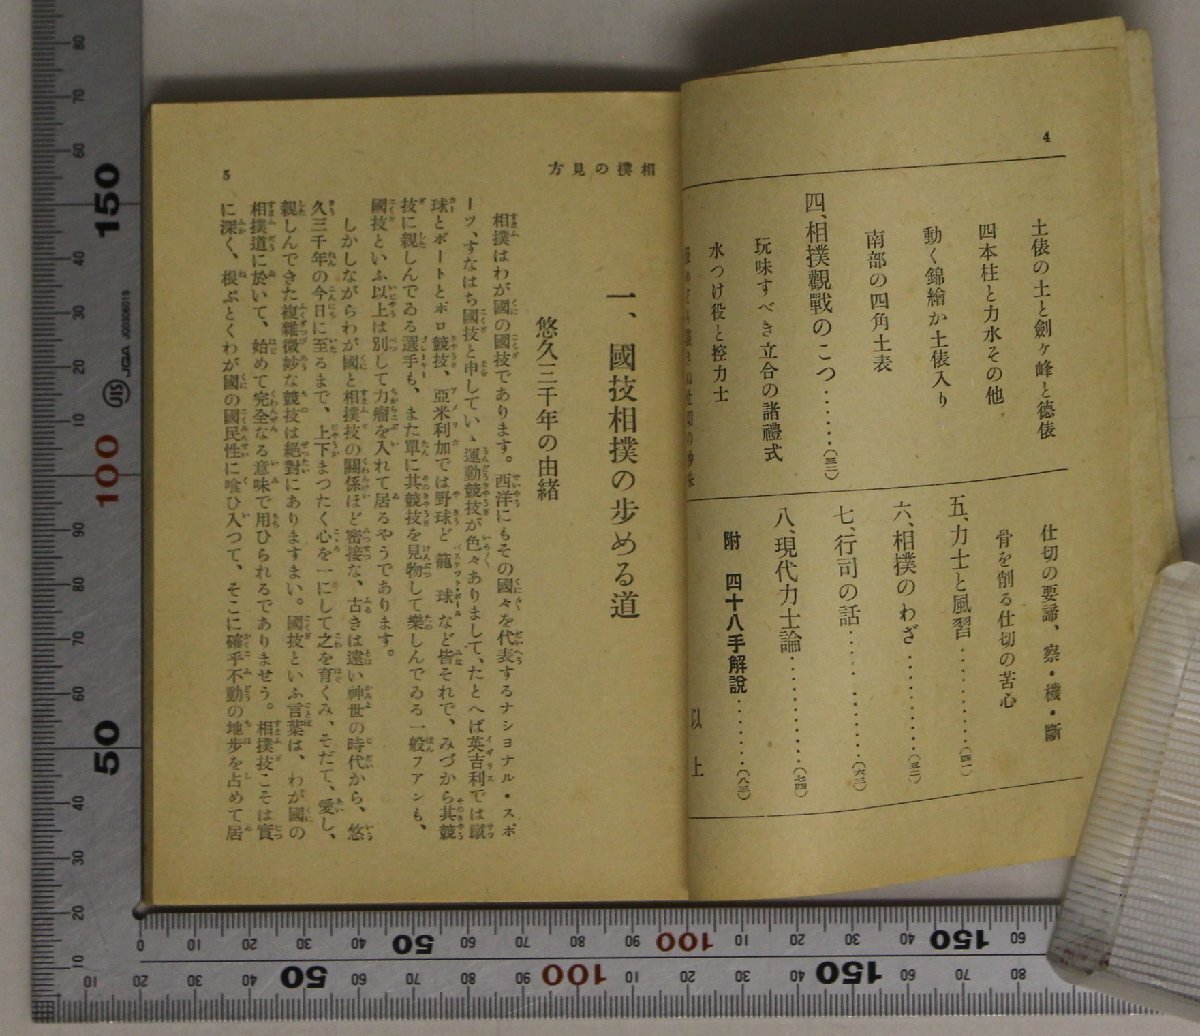 4
土俵の土と劍ヶ峰と德俵
四本柱と力水その他
動く錦繪か土俵入り
南部の四角土表
四、相撲觀戰のこつ………(三二)
玩味すべき立合の諸禮式
水つけ役と控力士
仕切の要諦、察・機・斷
骨を削る仕切の苦心
五、力士と風習………(四一)
六、相撲のわざ………(五二)
七、行司の話………(六三)
八、現代力士論………(七四)
附 四十八手解說………(八三)
以上
相撲の見方
5
一、國技相撲の步める道
悠久三千年の由緒
相撲はわが國の國技であります。西洋にもその國々を代表するナショナル・スポ
ーツ、すなはち國技と申していゝ運動競技が色々ありまして、たとへば英吉利では蹴
球とボートとポロ競技、亞米利加では野球と籠球など皆それで、みづから其競
技に親しんでゐる選手も、また單に其競技を見物して樂しんでゐる一般ファンも、
國技といふ以上は別して力瘤を入れて居るやうであります。
しかしながらわが國と相撲技の關係ほど密接な、古きは遠い神世の時代から、悠
久三千年の今日に至るまで、上下まつたく心を一にして之を育くみ、そだて、愛し、
親しんできた複雜微妙な競技は絕對にありますまい。國技といふ言葉は、わが國の
相撲道に於いて、始めて完全なる意味で用ひられるでありませう。相撲技こそは實
に深く、根ぶとくわが國の國民性に喰ひ入つて、そこに確乎不動の地步を占めて居